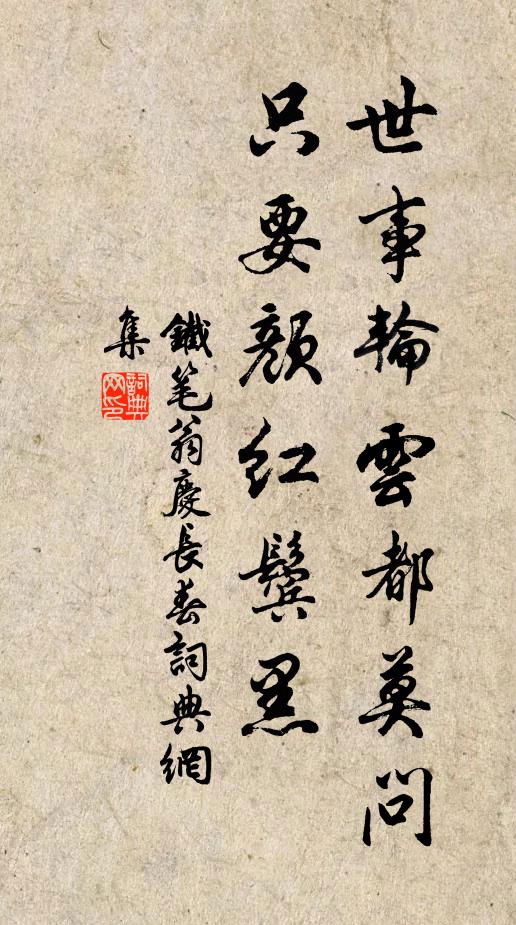 世事輪雲都莫問
只要顏紅鬢黑
鐵笔翁慶長春詞典網
集
詞典
网印